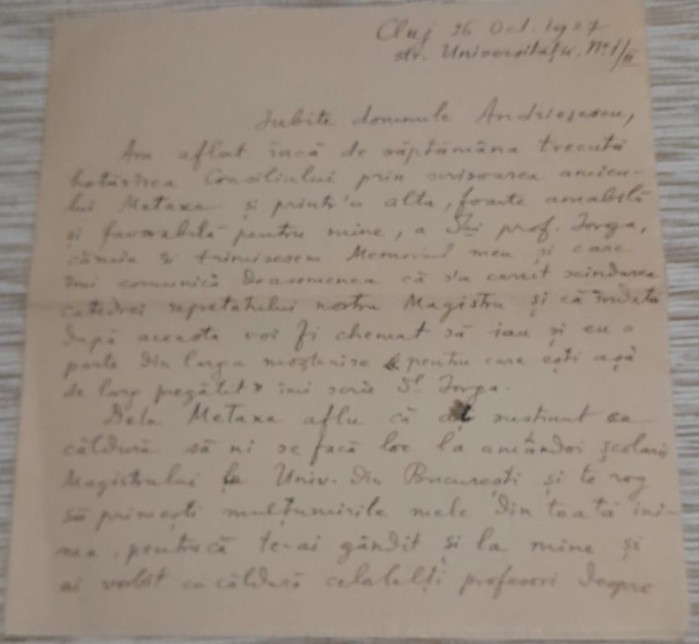 Cluj 26 Oct. 1927
str. Universității, No 1/II
Iubite domnule Andrieșescu,
Am aflat încă de săptămâna trecută
hotărîrea Consiliului prin scrisoarea amicu-
lui Metaxa și printr'o alta, foarte amabilă
și favorabilă pentru mine, a Slui prof. Iorga,
căruia îi trimisesem Memoriul meu și care
îmi comunică deasemenea că s'a cerut scindarea
catedrei repretatului nostru Magistru și că îndată
după aceasta voi fi chemat să iau și eu o
parte din larga moștenire « pentru care ești așà
de larg pregătit » îmi scrie Sl Iorga.
Dela Metaxa aflu că ai susținut cu
căldură să ni se facă loc la amândoi școlarii
Magistrului la Univ. din București și te rog
să primești mulțumirile mele din toată ini-
ma, pentrucă te-ai gândit și la mine și
ai vorbit cu căldură celalți profesori despre